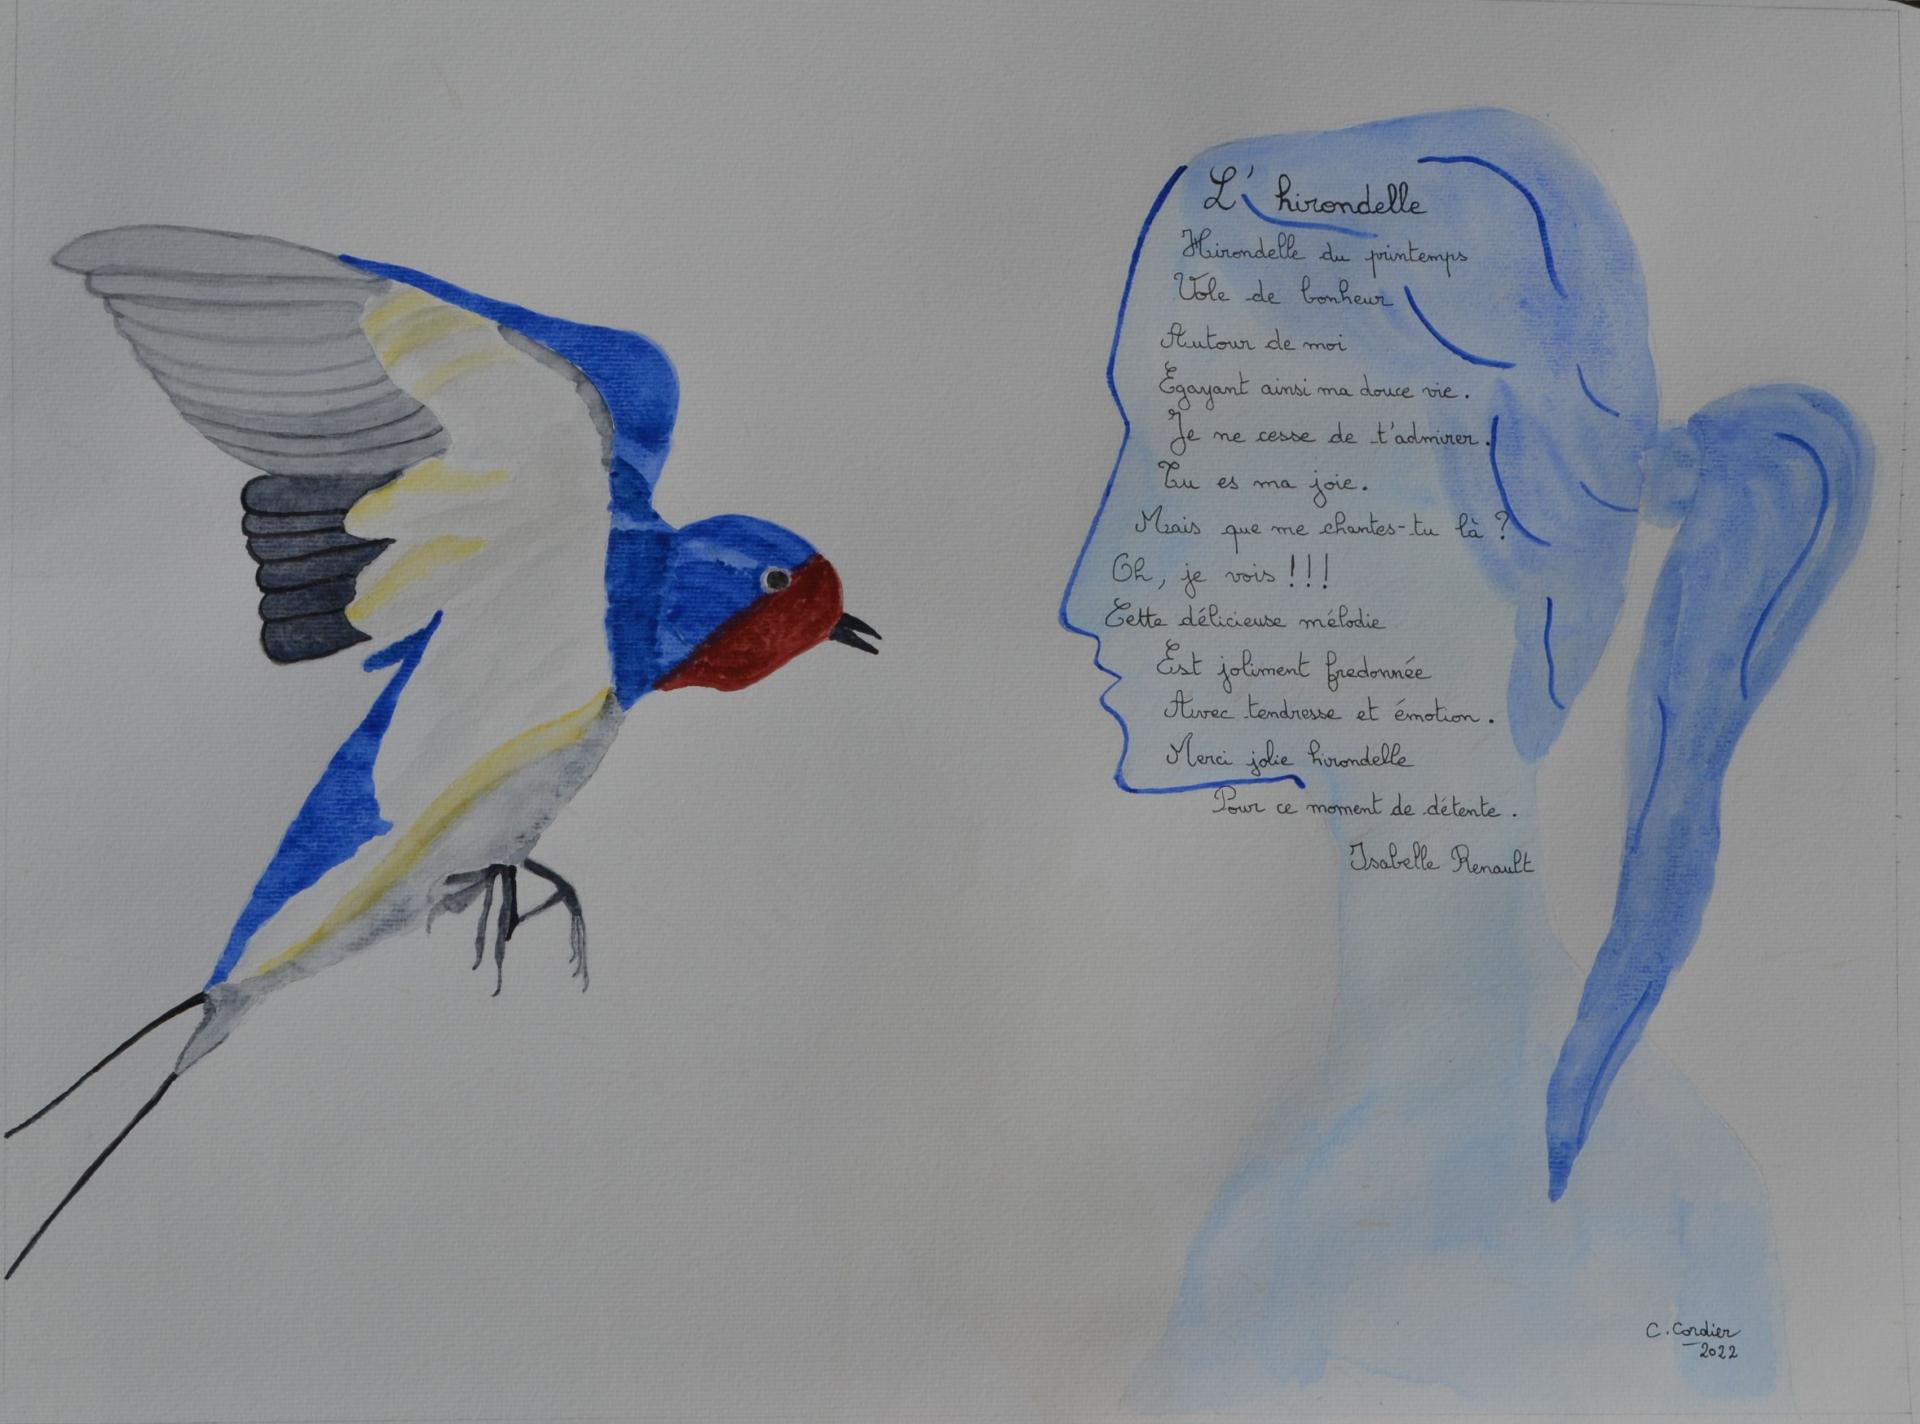 L' hirondelle
Hirondelle du printemps
Vole de bonheur
Autour de moi
Egayant ainsi ma douce vie.
Je ne cesse de t'admirer.
Tu es ma joie.
Mais que me chantes-tu là ?
Oh, je vois !!!
Cette délicieuse mélodie
Est joliment fredonnée
Avec tendresse et émotion.
Merci jolie hirondelle
Pour ce moment de détente.
Isabelle Renault
C. Cordier
2022